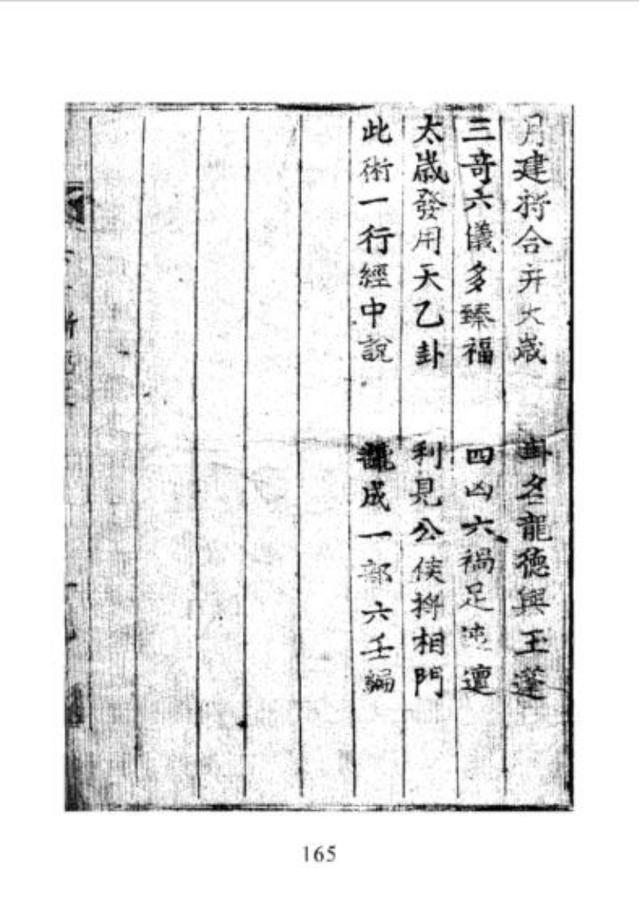 月建將合并大歲　卦名龍德與玉蓬
三奇六儀多臻福　四凶六禍足迍邅
太歲發用天乙卦　利見公侯將相門
此術一行經中說　成一部六壬編
165